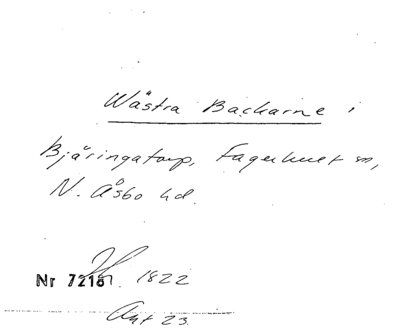 Wästra Backarne i
Bjäringatorp, Fagerhult sn,
N. Åsbo hd.
Nr 7218 1822
Akt 23.